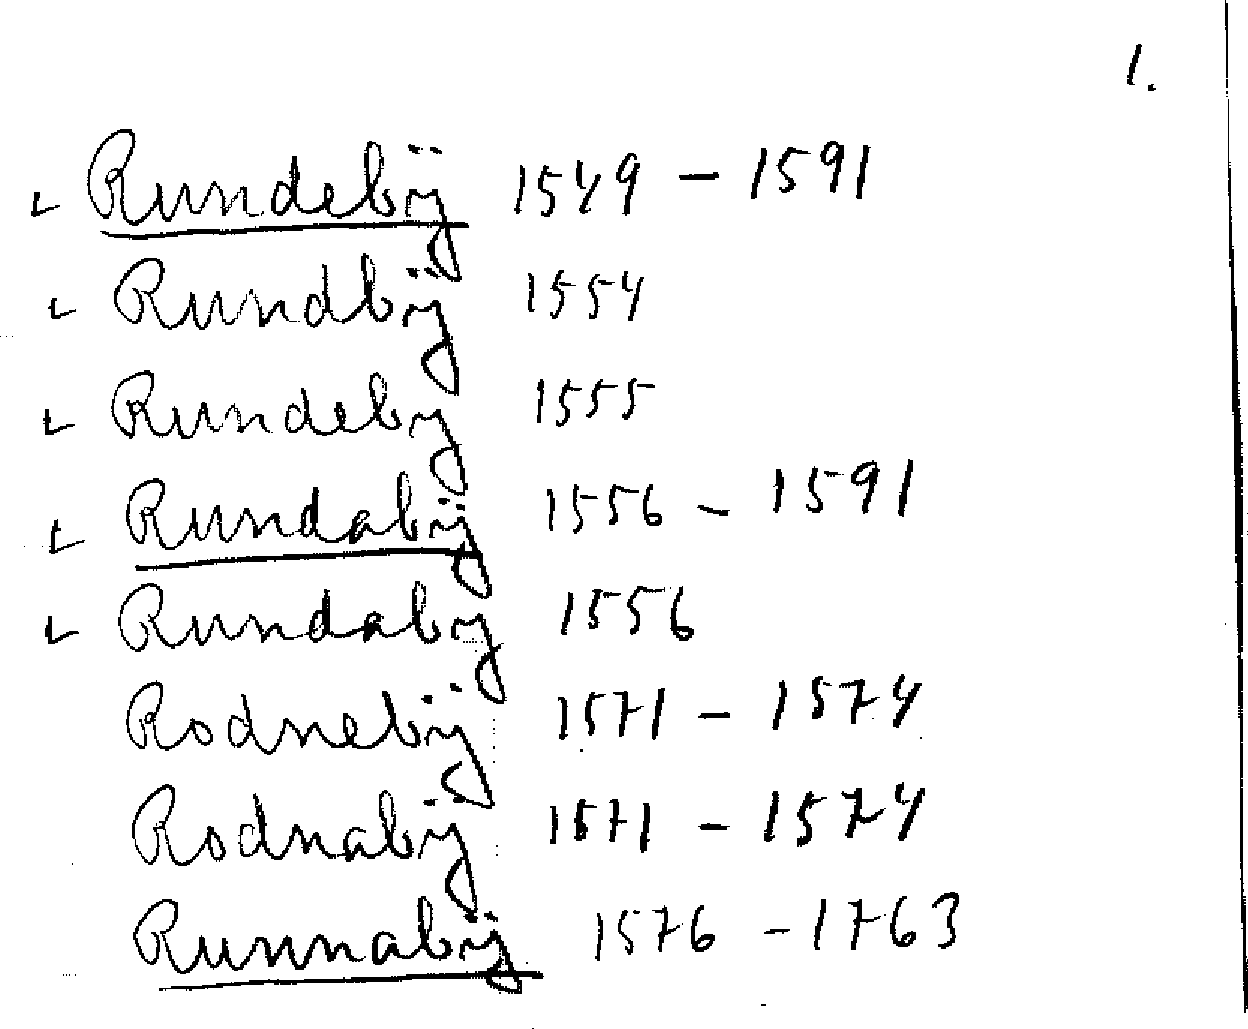 1.
Rundebÿ 1549 – 1591
Rundbÿ 1554
Rundeby 1555
Rundabÿ 1556 – 1591
Rundaby 1556
Rodnebÿ 1571 – 1574
Rodnabÿ 1571 – 1574
Runnabÿ 1576 – 1763